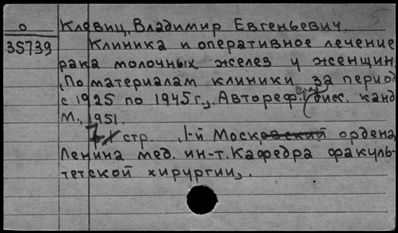 О Клевиц, Владимир Евгеньевич.
35739 Клиника и оперативное лечение
рака молочных желез у женщин
/По материалам клиники за период
с 1925 по 1945г./. Автореф. дисс. канд.
М., 1951.
стр. /1-й Московский ордена
Ленина мед. ин-т. Кафедра факуль-
тетской хирургии/.